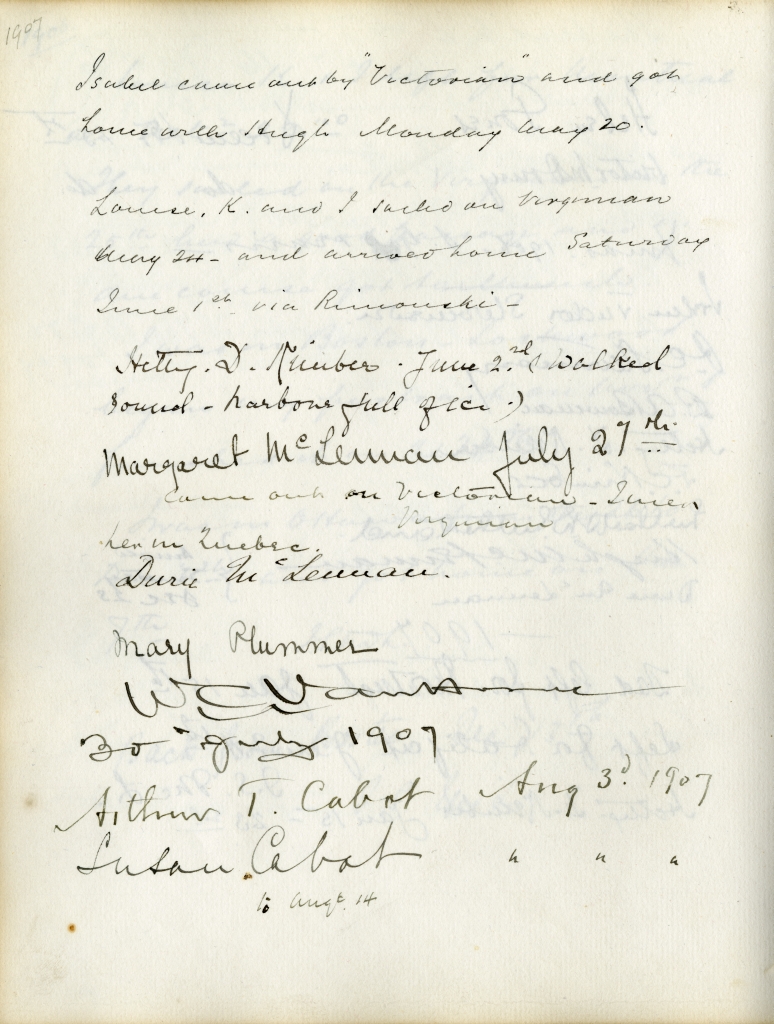 1907
Isabel came out by "Victorian" and got
home with Hugh Monday May 20.
Louise, K. and I sailed on Virginian
May 24 - and arrived home Saturday
June 1st via Rimouski -
Hetty. D. Kimber. June 2nd. (Walked
round - harbour full of ice.)
Margaret McLennan July 27th.
came out on Victorian - I met
Virginian
her in Quebec.
Durie McLennan.
Mary Plummer
W C Van Horne
30 July 1907
Arthur T. Cabot Aug 3d. 1907
Susan Cabot " " "
to Augt. 14